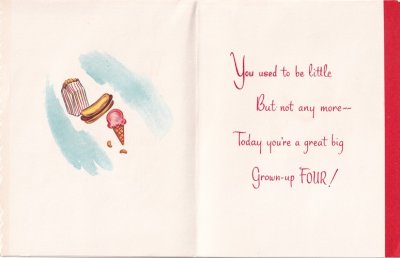 You used to be little
But not any more—
Today you're a great big
Grown-up FOUR!